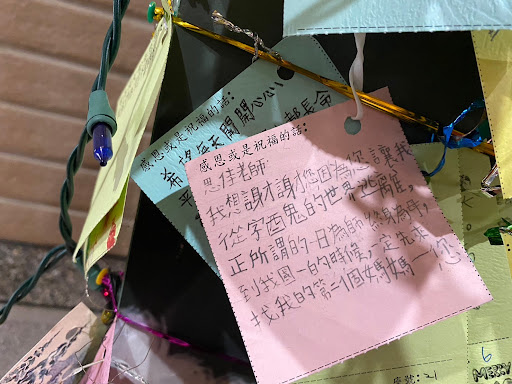 感恩或是祝福的話:
希望每天開開心心
平
都長命
感恩或是祝福的話:
思佳老師:
我想謝謝您因為您讓我
從字酉鬼的世界抽離,
正所謂的一日為師終身為母,
到我國一的時候一定先來
找我的第二個媽媽—您
號:21
6
MERRY